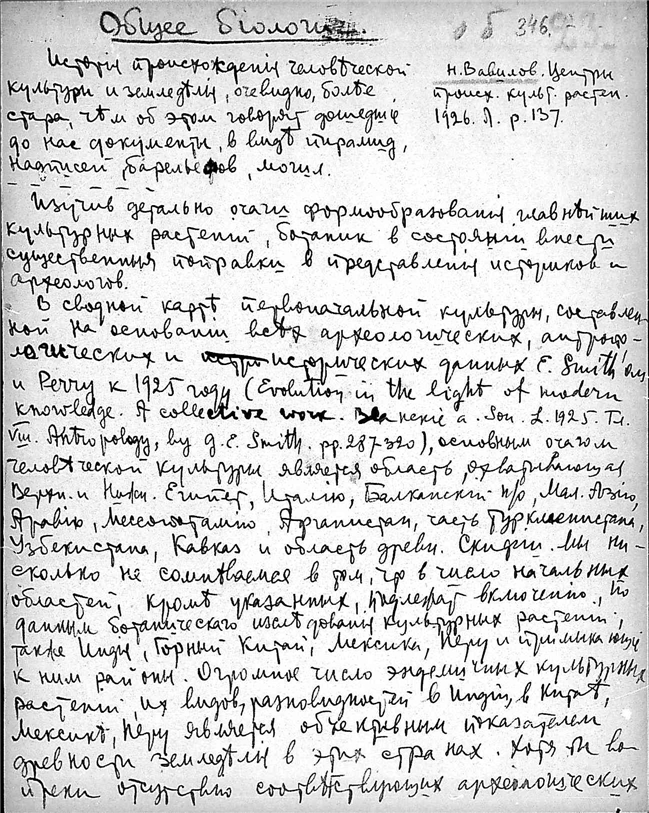 Общее бiологич.
346.
Исторiя происхожденiя человѣческой
культуры и земледѣлiя, очевидно, болѣе
стара, чѣм об этом говорят дошедшiе
до нас документы, в видѣ пирамид,
надписей, барельефов, могил.
Н. Вавилов. Центры
происх. культ. растен.
1926. Л. p. 137.
Изучив детально очаги формообразованiя главнѣйших
культурных растенiй, ботаник в состоянiи внести
существенныя поправки в представленiя историков и
археологов.
В сводной картѣ первоначальной культуры, составлен-
ной на основанiи всѣх археологических, антропо-
логических и исторических данных E. Smith'ом
и Perry к 1925 году (Evolution in the light of modern
knowledge. A collective work. a. Son. L. 1925. Гл.
VIII. Anthropology, by g. E. Smith. pp. 287-320), основным очагом
человѣческой культуры является область, охватывающая
Верхн. и Нижн. Египет, Италiю, Балканскiй п/о, Мал. Азiю,
Аравiю, Мессопотамiю, Афганистан, часть Туркменистана,
Узбекистана, Кавказ и область древн. Скифiи. Мы ни-
сколько не сомнѣваемся в том, что в число начальных
областей, кромѣ указанных, надлежат включенiю, по
данным ботаническаго изслѣдованiя культурных растенiй,
также Индiя, Горный Китай, Мексика, Перу и примыкающiе
к ним районы. Огромное число эндемичных культурных
растенiй, их видов, разновидностей в Индiи, в Китаѣ,
Мексикѣ, Перу является объективным показателем
древности земледѣлiя в этих странах. Хотя бы во-
преки отсутствию соотвѣтствующих археологических